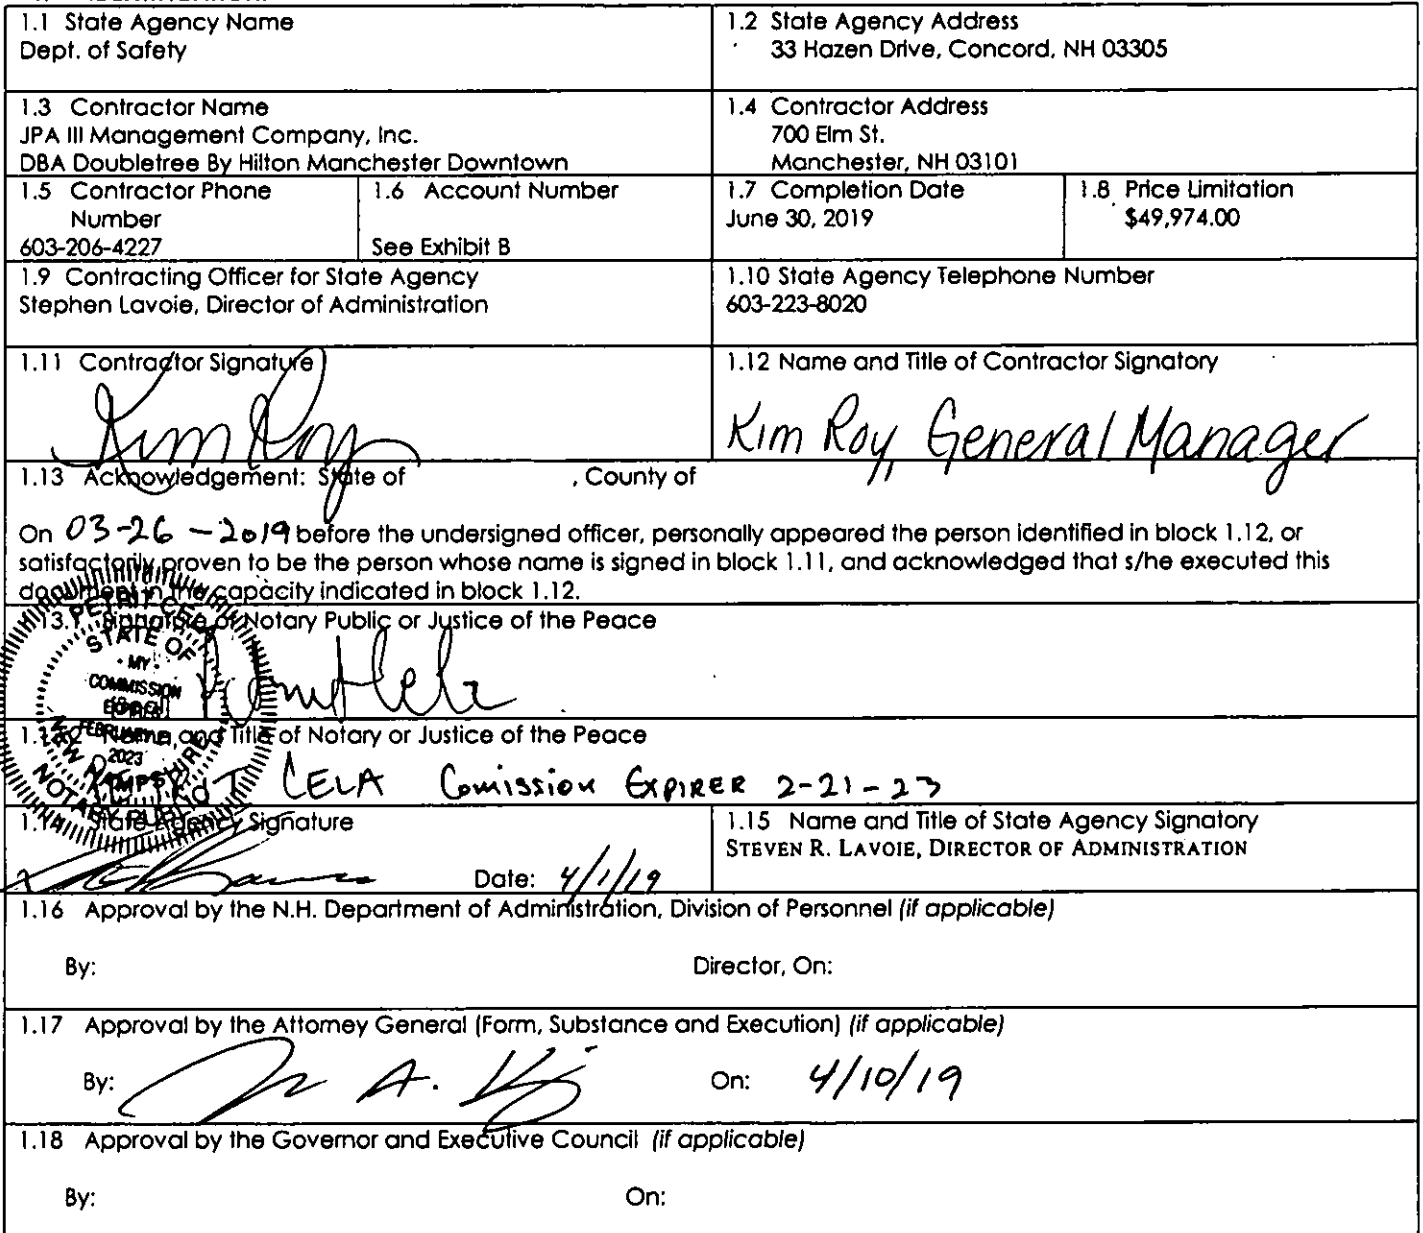 1.1 State Agency Name
Dept. of Safety
1.2 State Agency Address
33 Hazen Drive, Concord, NH 03305
1.3 Contractor Name
JPA III Management Company, Inc.
DBA Doubletree By Hilton Manchester Downtown
1.4 Contractor Address
700 Elm St.
Manchester, NH 03101
1.5 Contractor Phone
Number
603-206-4227
1.6 Account Number
See Exhibit B
1.7 Completion Date
June 30, 2019
1.8 Price Limitation
$49,974.00
1.9 Contracting Officer for State Agency
Stephen Lavoie, Director of Administration
1.10 State Agency Telephone Number
603-223-8020
1.11 Contractor Signature
Kim Roy
1.12 Name and Title of Contractor Signatory
Kim Roy, General Manager
1.13 Acknowledgement: State of , County of
On 03-26-2019 before the undersigned officer, personally appeared the person identified in block 1.12, or
satisfactorily proven to be the person whose name is signed in block 1.11, and acknowledged that s/he executed this
document in the capacity indicated in block 1.12.
1.13.1 Signature of Notary Public or Justice of the Peace
PETRIT CELA
STATE OF
MY
COMMISSION
EXPIRES
FEBRUARY 21
2023
NEW HAMPSHIRE
NOTARY PUBLIC
1.13.2 Name and Title of Notary or Justice of the Peace
CELA Comission EXPIRER 2-21-23
1.14 State Agency Signature
Date: 4/1/19
1.15 Name and Title of State Agency Signatory
STEVEN R. LAVOIE, DIRECTOR OF ADMINISTRATION
1.16 Approval by the N.H. Department of Administration, Division of Personnel (if applicable)
By: Director, On:
1.17 Approval by the Attorney General (Form, Substance and Execution) (if applicable)
By: On: 4/10/19
1.18 Approval by the Governor and Executive Council (if applicable)
By: On: